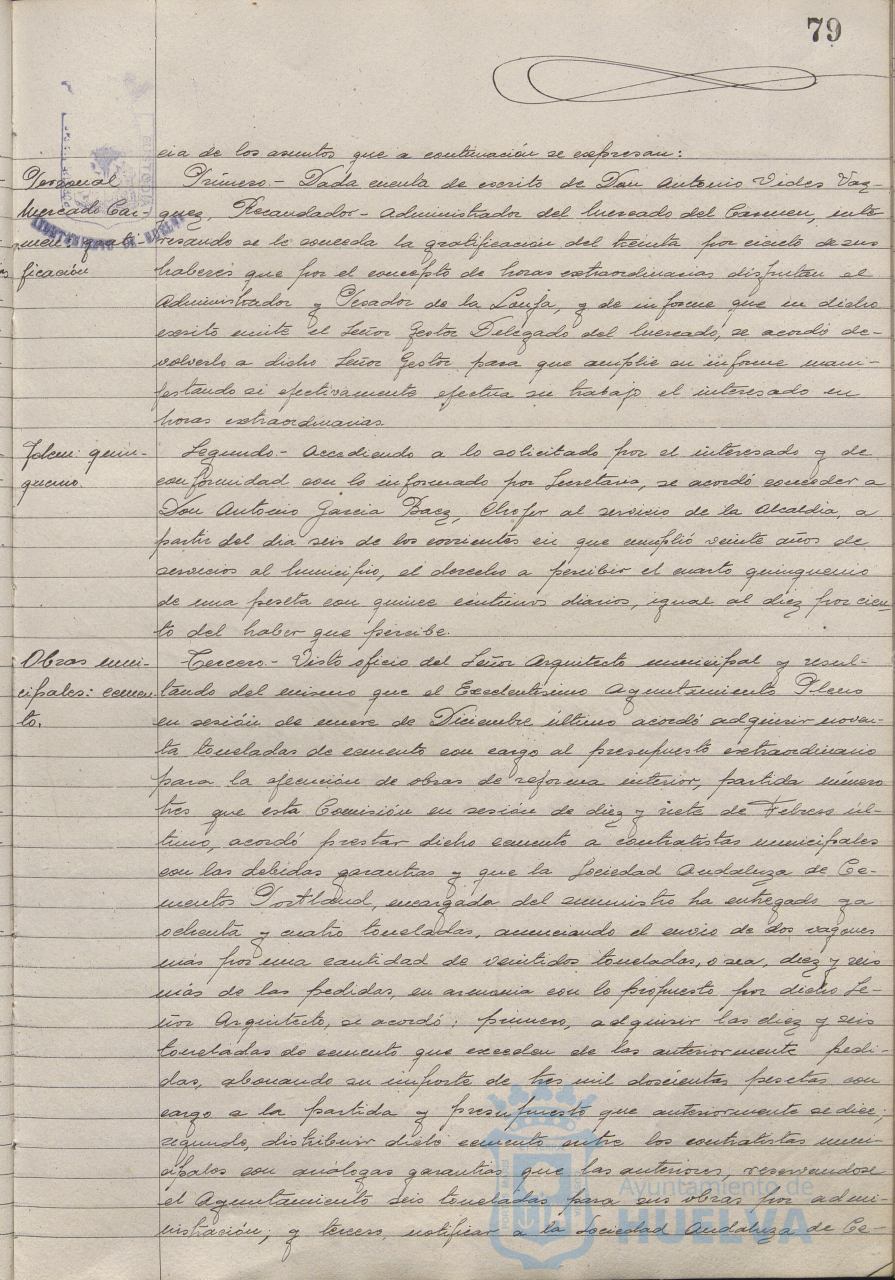 79
cia de los asuntos que a continuación se expresan:
Personal
Mercado Car-
men: grati-
ficación
Primero.- Dada cuenta de escrito de Don Antonio Vides Vaz-
quez, Recaudador-Administrador del Mercado del Carmen, inte-
resando se le conceda la gratificación del treinta por ciento de sus
haberes que por el concepto de horas extraordinarias disfrutan el
Administrador y Pesador de la Lonja, y de informe que en dicho
escrito emite el Señor Gestor Delegado del Mercado, se acordó de-
volverlo a dicho Señor Gestor para que amplie su informe mani-
festando si efectivamente efectua su trabajo el interesado en
horas extraordinarias.
Idem: quin-
quenio.
Segundo.- Accediendo a lo solicitado por el interesado y de
conformidad con lo informado por Secretaria, se acordó conceder a
Don Antonio Garcia Baez, Chofer al servicio de la Alcaldia, a
partir del dia seis de los corrientes en que cumplió veinte años de
servicios al Municipio, el derecho a percibir el cuarto quinquenio
de una peseta con quince centimos diarios, igual al diez por cien-
to del haber que percibe.
Obras muni-
cipales: cemen-
to.
Tercero.- Visto oficio del Señor Arquitecto municipal y resul-
tando del mismo que el Excelentisimo Ayuntamiento Pleno
en sesión de nueve de Diciembre último acordó adquirir noven-
ta toneladas de cemento con cargo al presupuesto extraordinario
para la ejecución de obras de reforma interior, partida número
tres que esta Comisión en sesión de diez y siete de Febrero úl-
timo, acordó prestar dicho cemento a contratistas municipales
con las debidas garantias y que la Sociedad Andaluza de Ce-
mentos Portland, encargada del suministro ha entregado ya
ochenta y cuatro toneladas, anunciando el envio de dos vagones
más por una cantidad de veintidos toneladas, o sea, diez y seis
más de las pedidas, en armonia con lo propuesto por dicho Se-
ñor Arquitecto, se acordó: primero, adquirir las diez y seis
toneladas de cemento que exceden de las anteriormente pedi-
das, abonando su importe de tres mil doscientas pesetas con
cargo a la partida y presupuesto que anteriormente se dice;
segundo, distribuir dicho cemento entre los contratistas muni-
cipales con análogas garantias que las anteriores, reservandose
el Ayuntamiento seis toneladas para sus obras por admi-
nistración; y tercero, notificar a la Sociedad Andaluza de Ce-
Ayuntamiento de
HUELVA